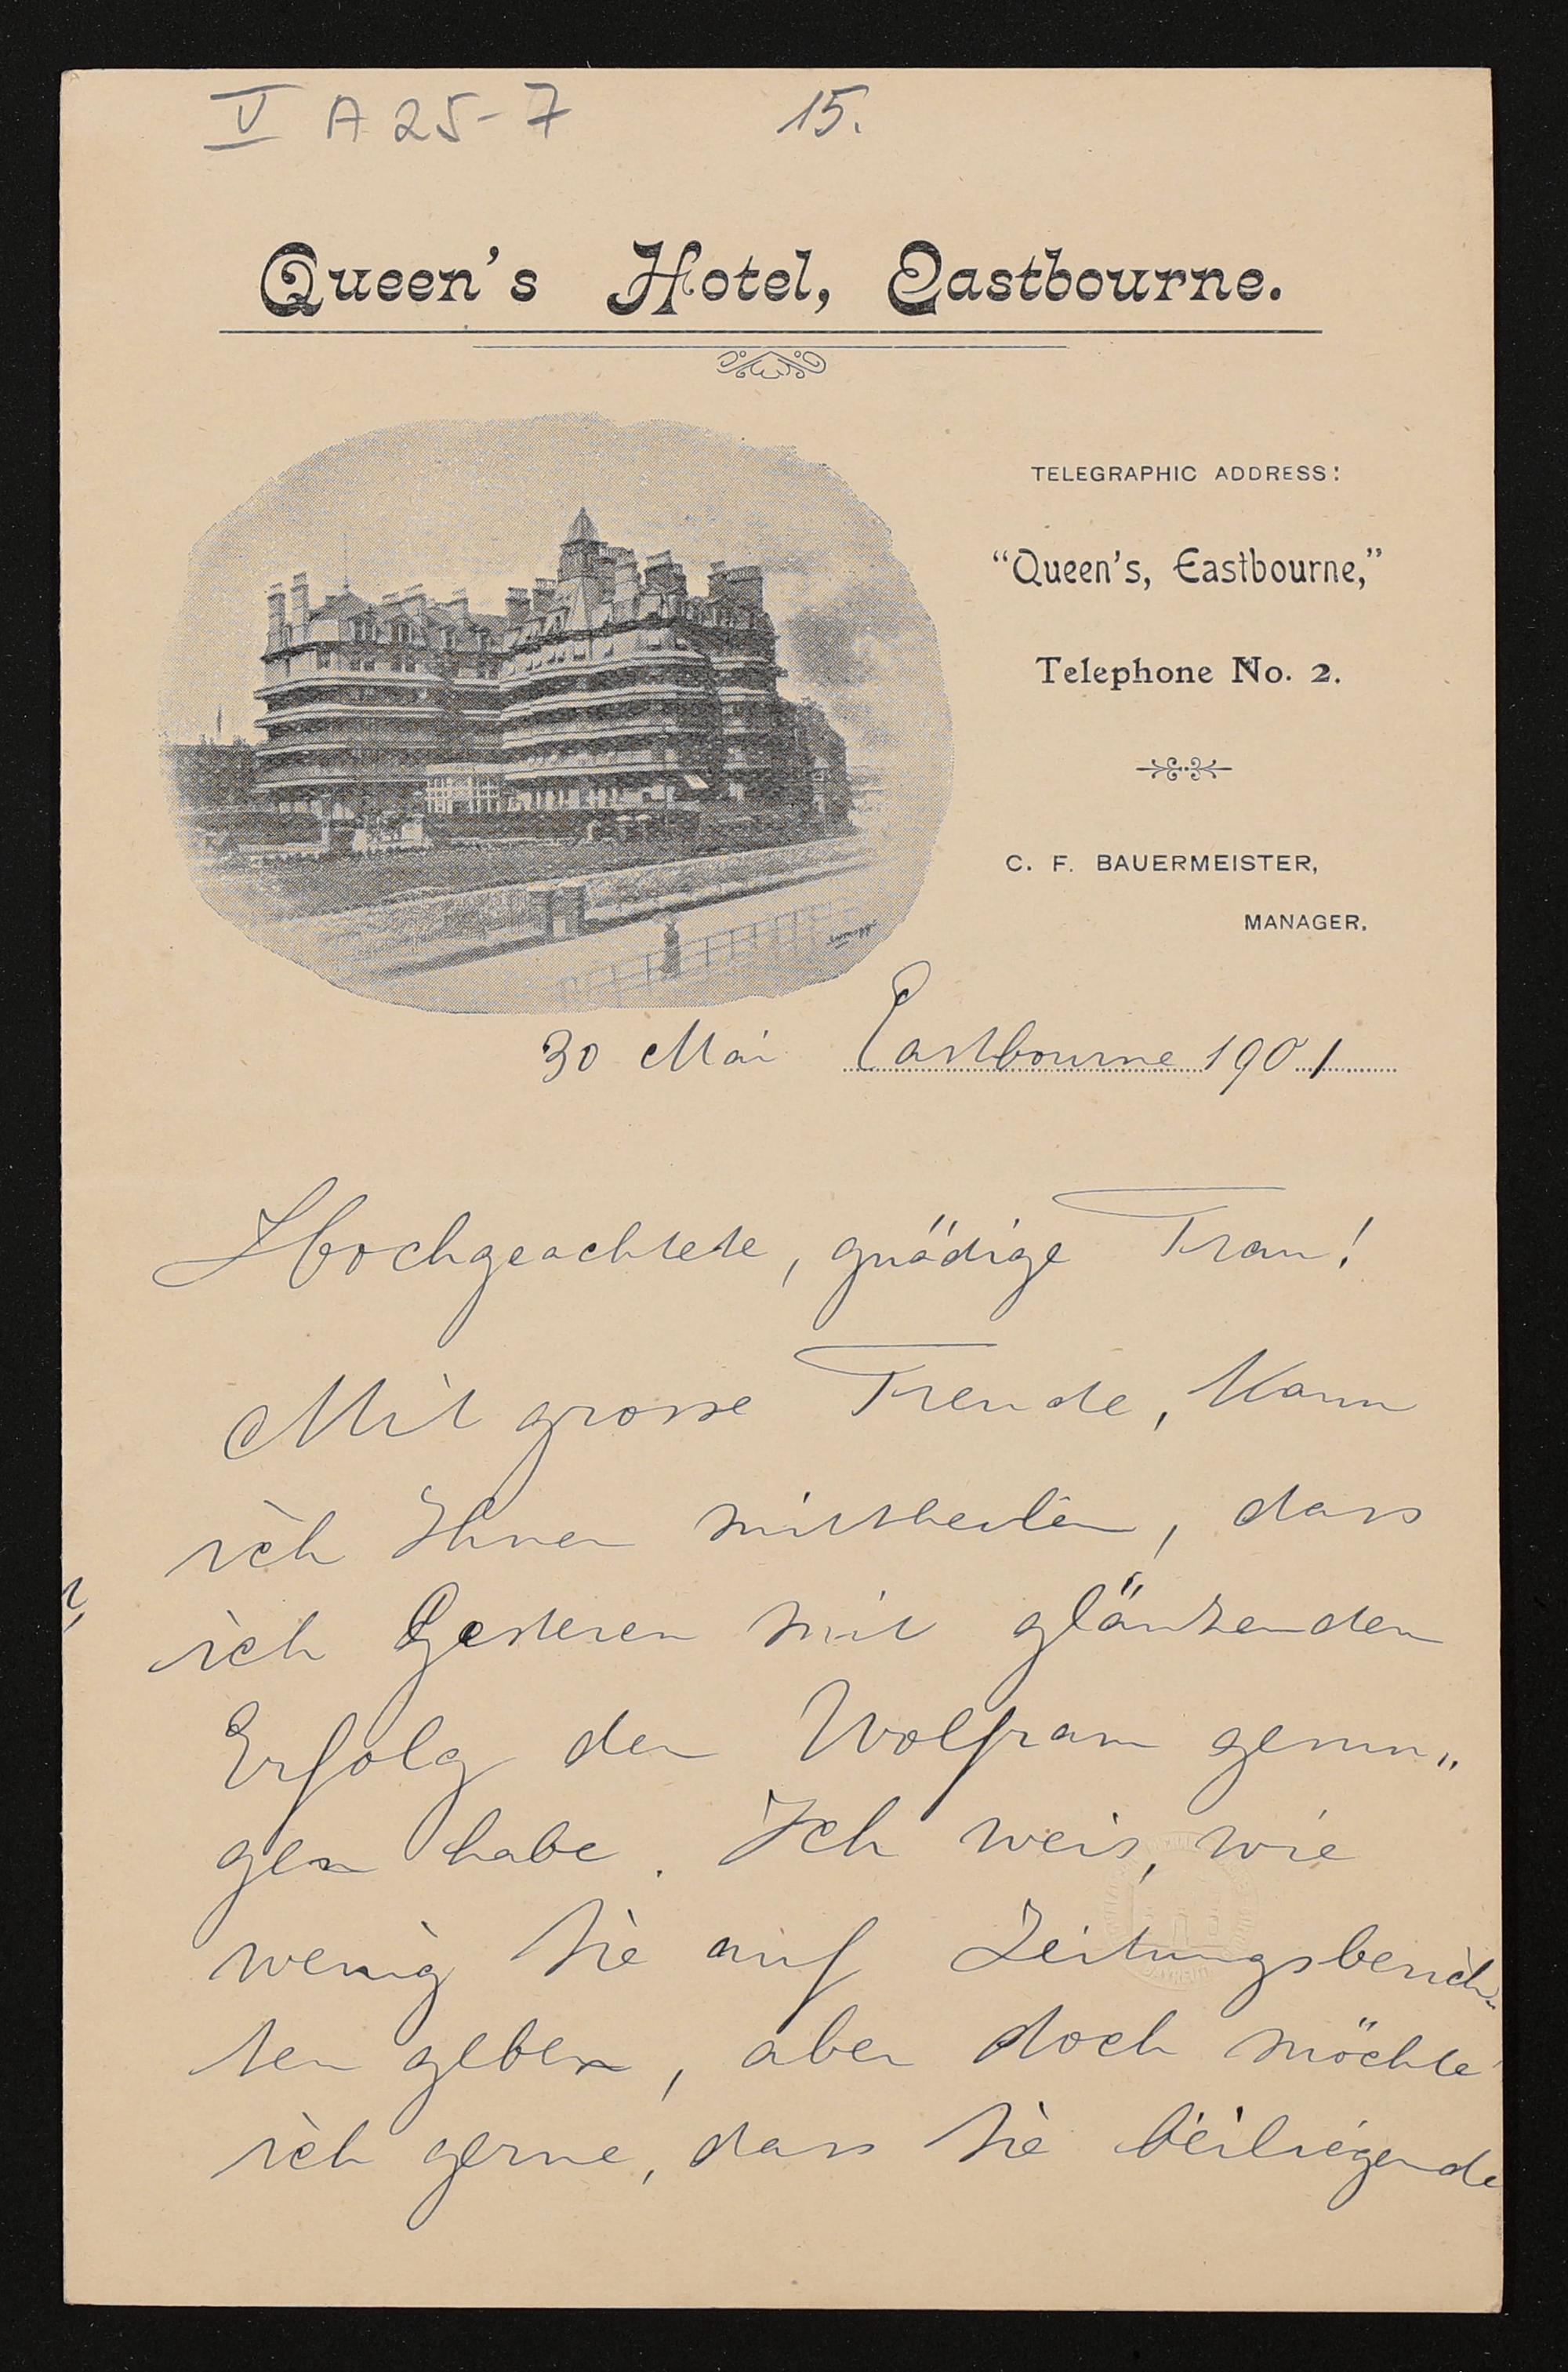 V A 25-7 15.
Queen's Hotel, Eastbourne.
TELEGRAPHIC ADDRESS:
“Queen's, Eastbourne,”
Telephone No. 2.
C. F. BAUERMEISTER,
MANAGER.
30 Mai Eastbourne 1901
Hochgeachtete, gnädige Frau!
Mit grosse Freude, Kann
ich Ihnen mittheilen, dass
ich Gesteren mit glänzenden
Erfolg den Wolfram gesun„
gen habe. Ich weis, wie
wenig Sie auf Zeitungsberich-
ten geben, aber doch möchte
ich gerne, dass Sie beiliegende